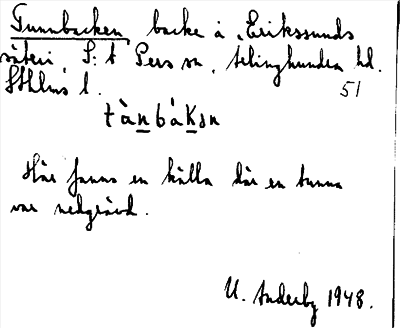 Tunnbacken backe å Erikssunds
säteri, S:t Pers sn, Ärlinghundra hd.
Sthlms l.
51
tànbákən
Här fanns en källa där en tunna
var nedgrävd.
U. Anderby 1948.